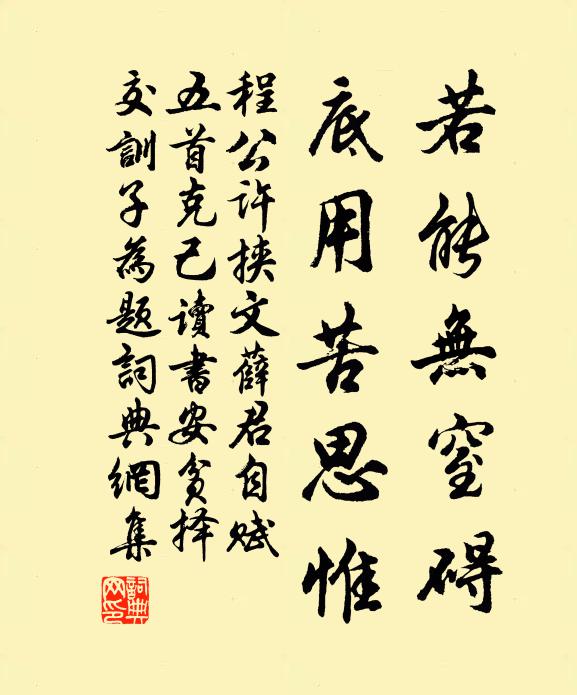 若能無窒碍
底用苦思惟
程公許挟文薛君自赋
五首克己讀書安贫择
交訓子為题詞典網集
詞典網印